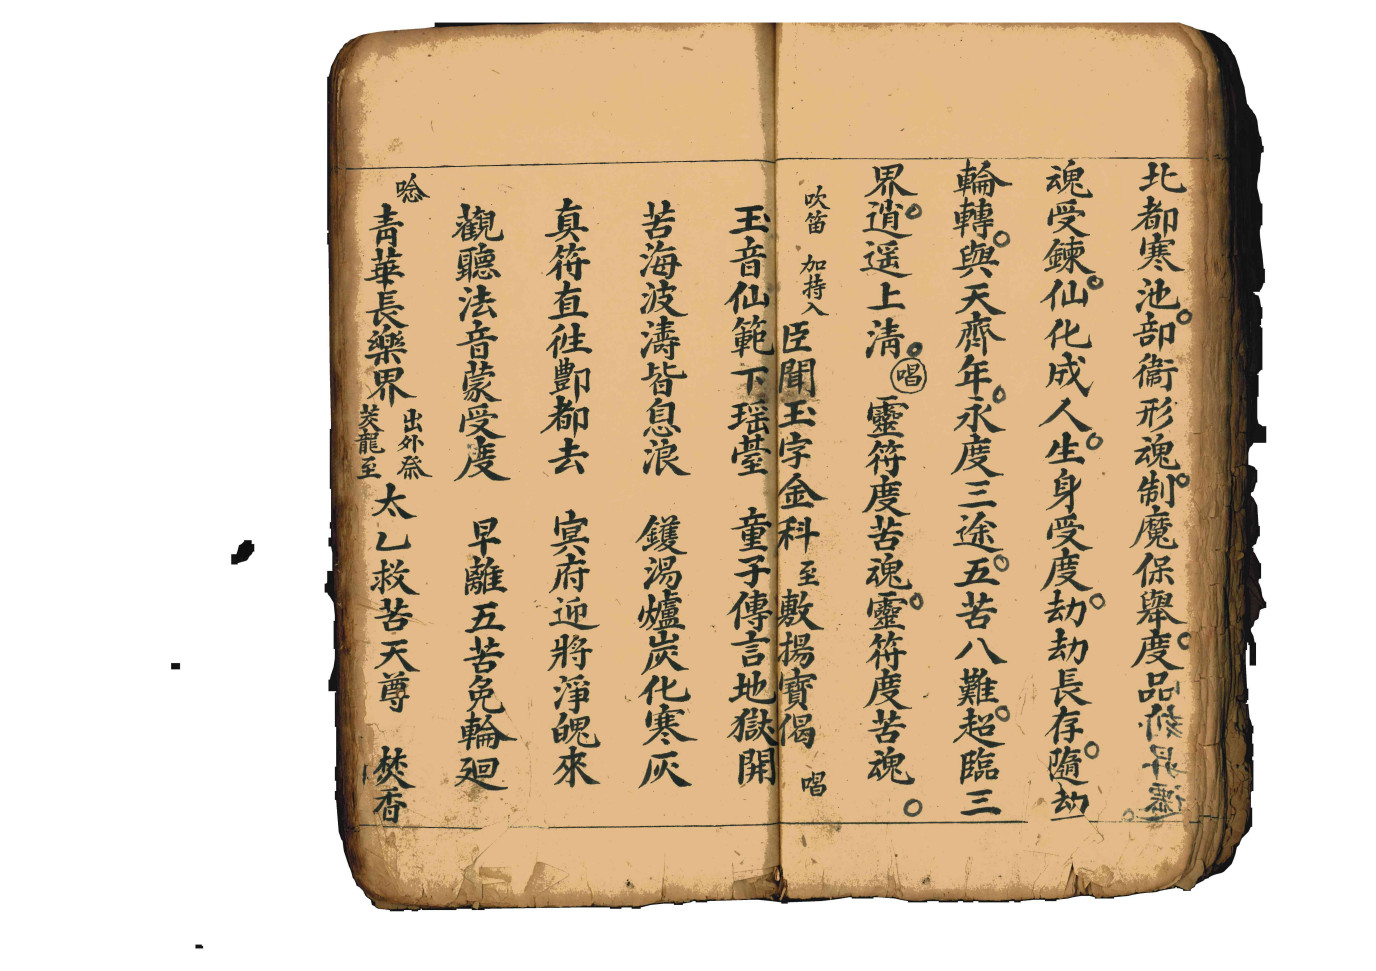 北都寒池部衞形魂制魔保舉度品
魂受鍊仙化成人生身受度劫劫長存隨劫
輪轉與天齊年永度三途五苦八難超臨三
界逍遥上清 唱 靈符度苦魂靈符度苦魂
吹笛 加持入 臣聞玉字金科 至 敷揚寶偈 唱
玉音仙範下瑶臺 童子傳言地獄開
苦海波濤皆息浪 鑊湯爐炭化寒灰
真符直徃酆都去 㝠府迎將淨魄來
觀聽法音蒙受度 早離五苦免輪廻
唸 青華長樂界 出外祭 茭龍至 太乙救苦天尊 焚香